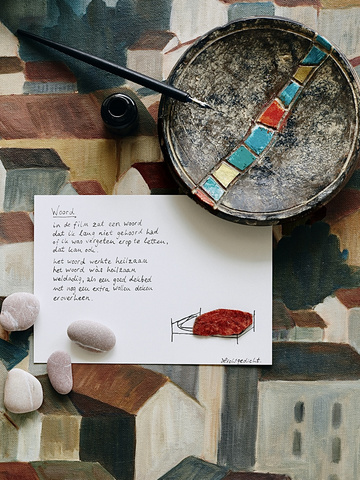 Woord
in de film zat een woord
dat ik lang niet gehoord had
of ik was vergeten erop te letten,
dat kan ook
het woord werkte heilzaam
het woord was heilzaam
weldadig, als een goed dekbed
met nog een extra wollen deken
eroverheen.